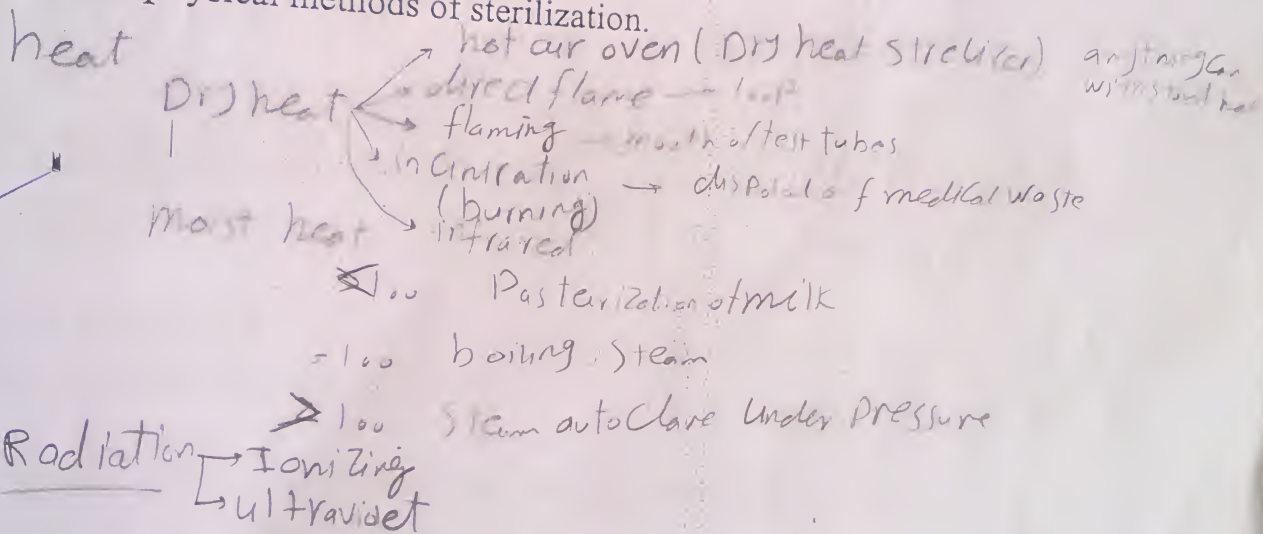 physical methods of sterilization.
heat
Dry heat
hot air oven (Dry heat strelizer) anything can
withstand heat
direct flame - loop
flaming - mouth of test tubes
incinration → disposal of medical waste
(burning)
infrared
moist heat
<100 Pasterization of milk
=100 boiling. Steam
>100 Steam autoclave under pressure
Radiation → Ionizing
→ ultraviolet